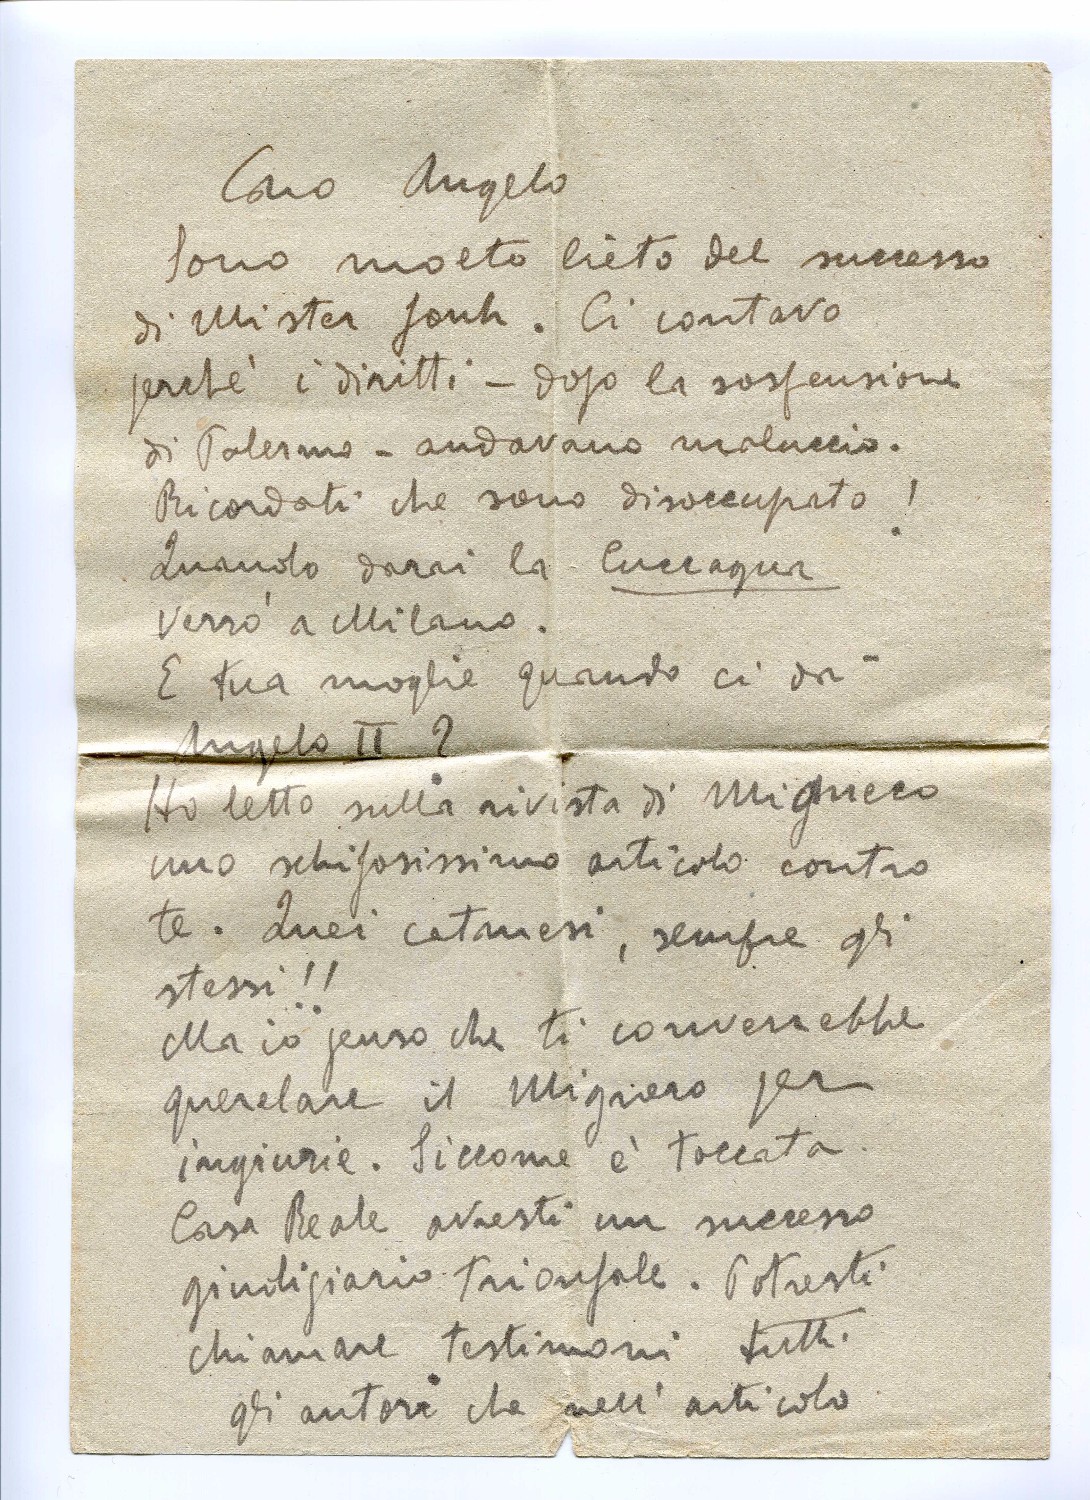 Caro Angelo
Sono molto lieto del successo
di Mister Jonh. Ci contavo
perchè i diritti - dopo la sospensione
di Palermo - andavano maluccio.
Ricordati che sono disoccupato!
Quando darai la Cuccagna
verrò a Milano.
E tua moglie quando ci dà
Angelo II?
Ho letto sulla rivista di Migneco
uno schifosissimo articolo contro
te. Quei catanesi, sempre gli
stessi!!
Ma io penso che ti converrebbe
querelare il Migneco per
ingiurie. Siccome è toccata
Casa Reale avresti un successo
giudiziario trionfale. Potresti
chiamare testimoni tutti
gli autori che nell'articolo